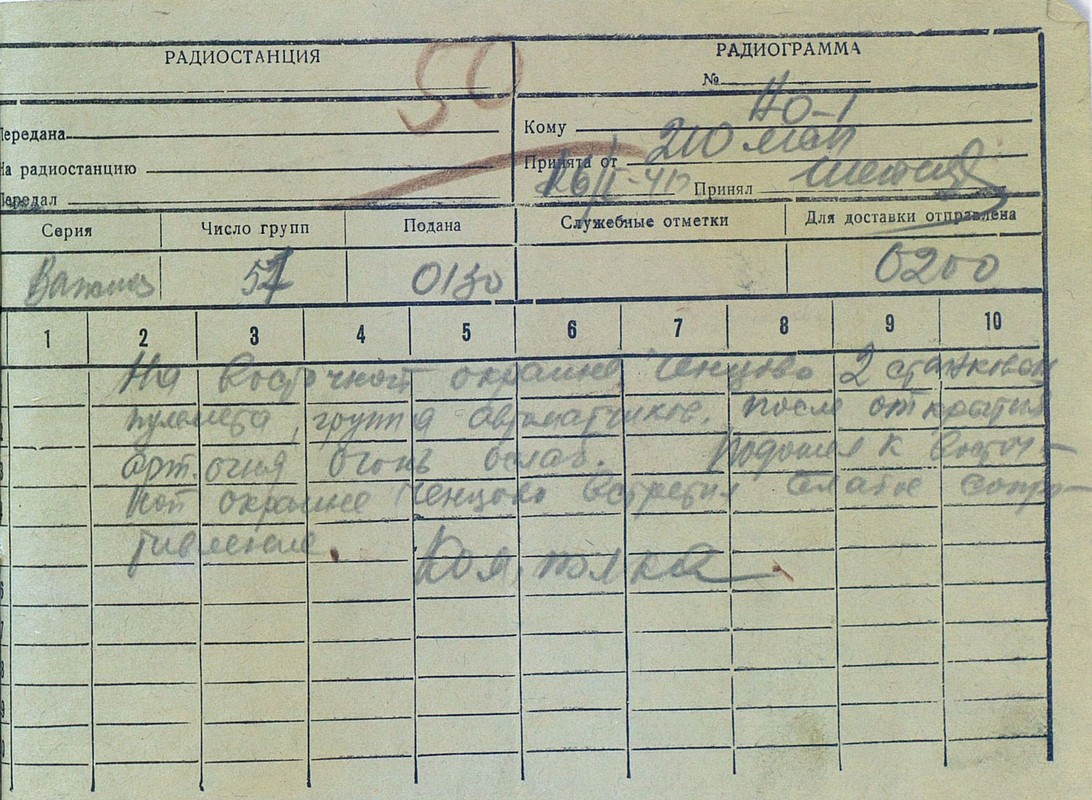 РАДИОСТАНЦИЯ
50
РАДИОГРАММА
№
Передана
Кому НО-1
На радиостанцию
Принята от 210 мсп
Передал
Принял
Серия
Число групп
Подана
Служебные отметки
Для доставки отправлена
57
0130
0200
1 2 3 4 5 6 7 8 9 10
На восточной окраине Ченцово 2 станковых
пулемета, группа автоматчиков. После открытия
арт. огня огонь ослаб. Подошел к восточ-
ной окраине Ченцово встретил слабое сопро-
тивление.